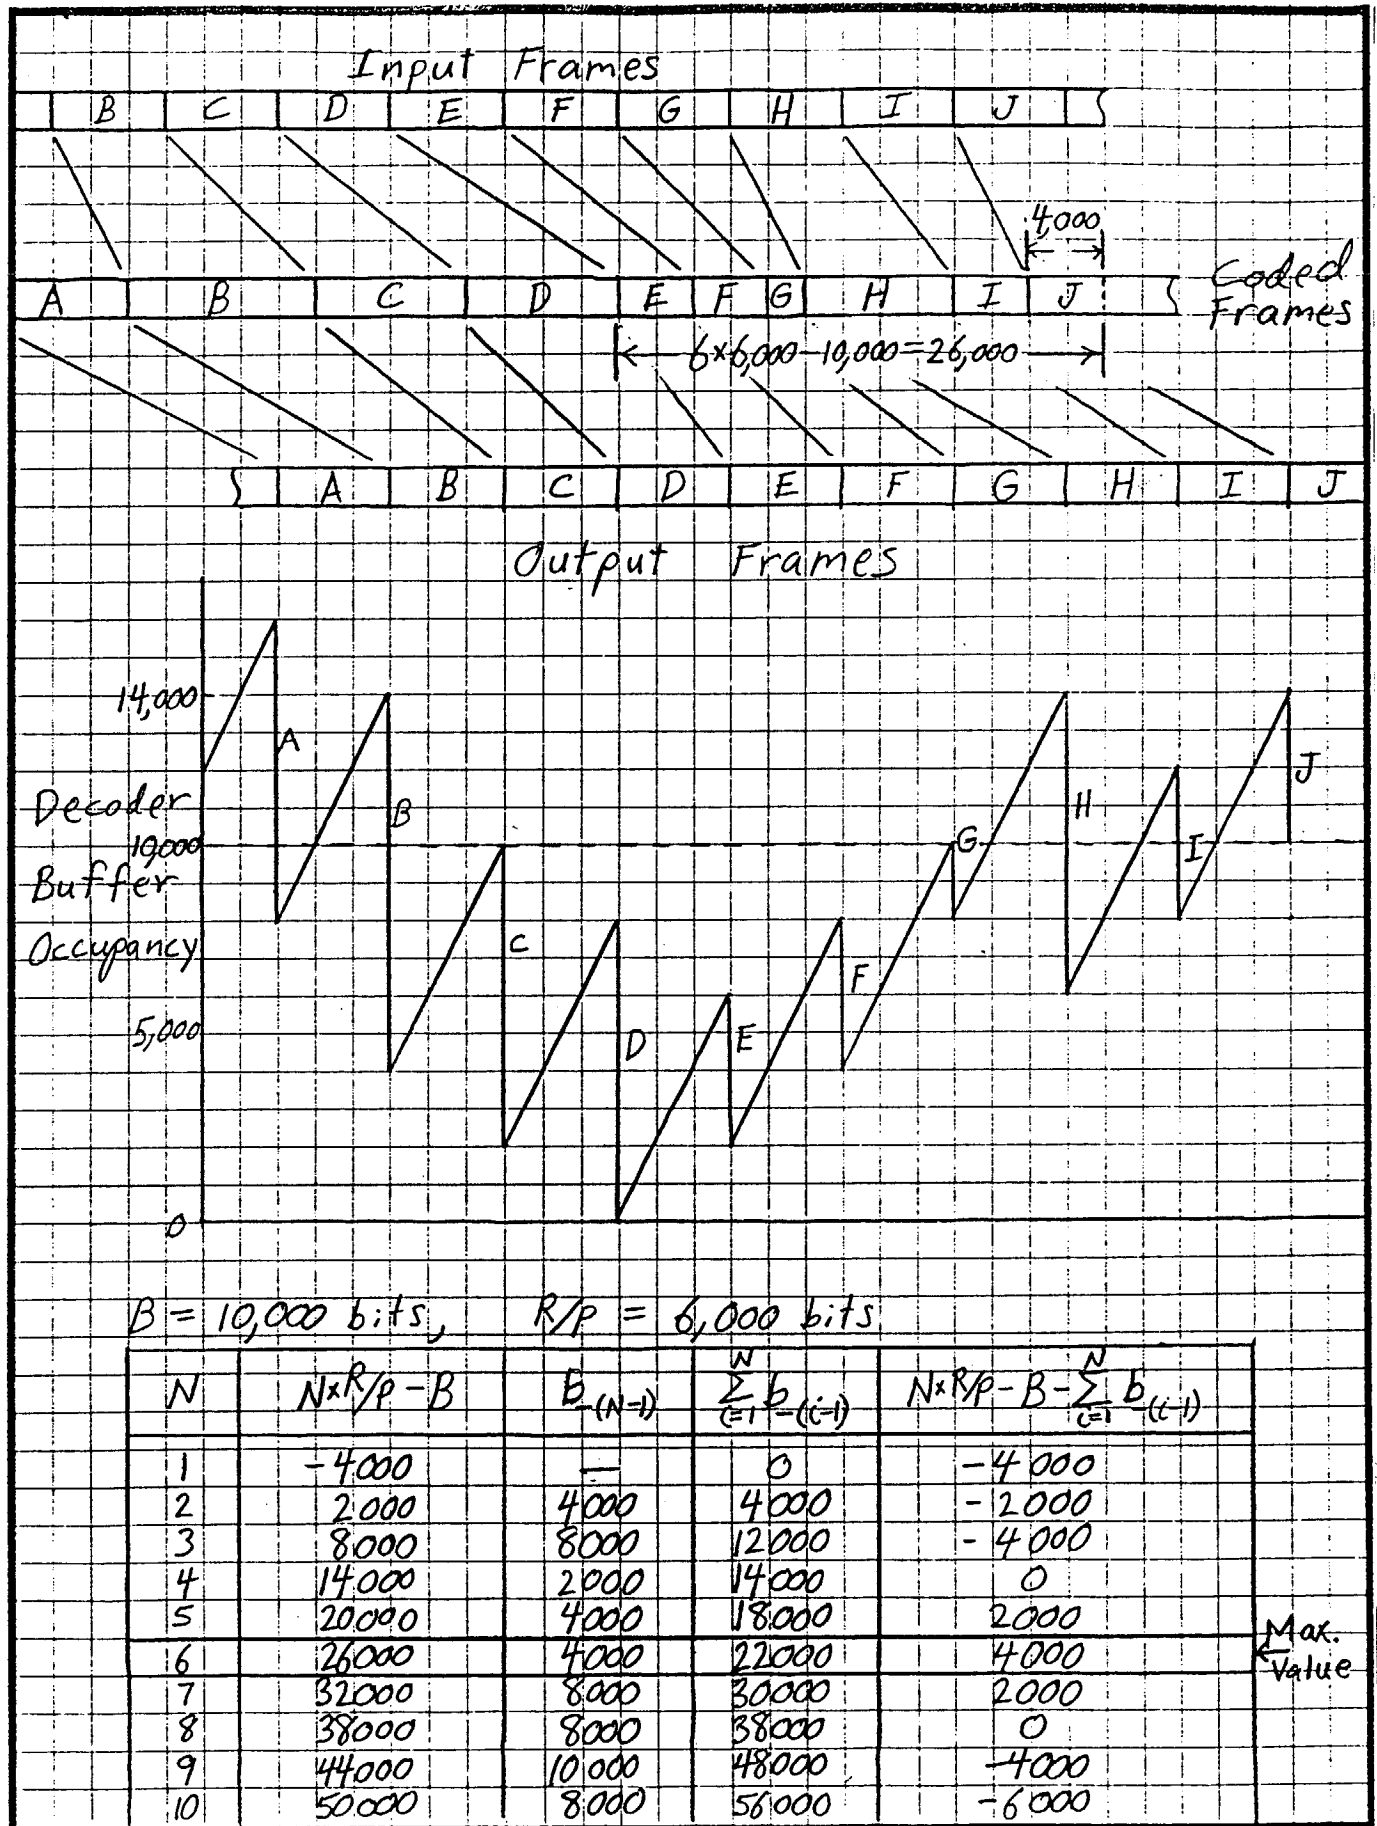 Input Frames
B C D E F G H I J
4,000
Coded
Frames
A B C D E F G H I J
6×6,000-10,000=26,000
A B C D E F G H I J
Output Frames
14,000
A
B
Decoder
10,000
Buffer
Occupancy
5,000
0
C
D
E
F
G
H
I
J
B = 10,000 bits, R/p = 6,000 bits
N N×R/p - B b_-(N-1) N∑i=1 b_-(i-1) N×R/p - B - N∑i=1 b_-(i-1)
1 -4000 — 0 -4000
2 2000 4000 4000 -2000
3 8000 8000 12000 -4000
4 14000 2000 14000 0
5 20000 4000 18000 2000
6 26000 4000 22000 4000
Max.
Value
7 32000 8000 30000 2000
8 38000 8000 38000 0
9 44000 10000 48000 -4000
10 50000 8000 56000 -6000